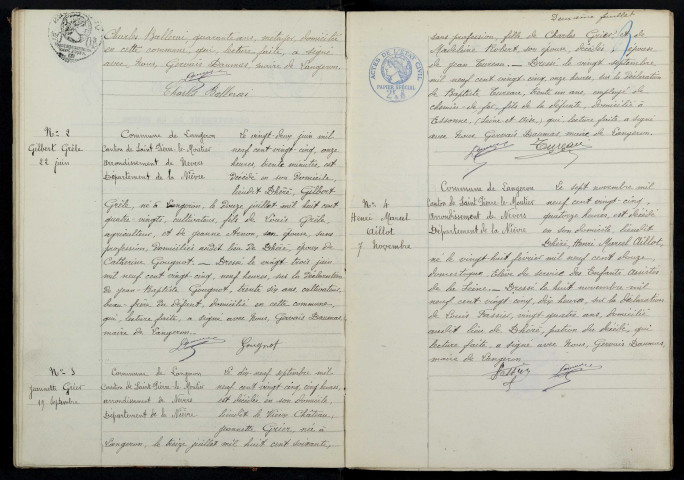 Charles Ballerai, quarante ans, métayer, domicilié
en cette commune, qui, lecture faite, a signé
avec nous, Gervais Daumas, maire de Langeron.
Charles Ballerai
N° 2
Gilbert Grêle
22 juin
Commune de Langeron
Canton de Saint Pierre le Moutier
Arrondissement de Nevers
Département de la Nièvre
Le vingt deux juin mil
neuf cent vingt cinq, onze
heures, trente minutes, est
décédé en son domicile
lieudit Dhéré, Gilbert
Grêle, né à Langeron, le douze juillet mil huit cent
quatre-vingts, cultivateur, fils de Louis Grêle,
agriculteur, et de Jeanne son épouse, sans
profession, domiciliés audit lieu de Dhéré, époux de
Catherine Gougnot. — Dressé le vingt trois juin
mil neuf cent vingt cinq, neuf heures, sur la déclaration
de Jean-Baptiste Gougnot, trente six ans, cultivateur,
beau-frère du défunt, domicilié en cette commune,
qui, lecture faite, a signé avec nous, Gervais Daumas,
maire de Langeron.
Gougnot
N° 3
Jeannette Grier
19 septembre
Commune de Langeron
Canton de Saint Pierre le Moutier
arrondissement de Nevers
Département de la Nièvre
Le dix neuf septembre mil
neuf cent vingt cinq, cinq heures,
est décédée en son domicile
lieudit le Vieux Château,
Jeannette Grier née à
Langeron, le treize juillet mil huit cent soixante,
Deuxième feuillet
ACTES DE L'ÉTAT CIVIL
PAPIER SPÉCIAL
sans profession, fille de Charles Grier et de
Madeleine Robert, son épouse, décédés, épouse
de Jean Tureau. — Dressé le vingt septembre
mil neuf cent vingt cinq, onze heures, sur la déclaration
de Baptiste Tureau, trente un ans, employé de
chemin de fer, fils de la défunte, domicilié à
Essonne, (Seine et Oise), qui, lecture faite, a signé
avec nous Gervais Daumas, maire de Langeron.
Tureau
N° 4
Henri Marcel
Aillot
7 novembre
Commune de Langeron
Canton de Saint Pierre le Moutier
Arrondissement de Nevers
Département de la Nièvre
Le sept novembre mil
neuf cent vingt cinq,
quatorze heures, est décédé
en son domicile, lieudit
Dhéré, Henri Marcel Aillot,
né le vingt huit février mil neuf cent douze,
domestique, élève du service des Enfants assistés
de la Seine. — Dressé le huit novembre mil
neuf cent vingt cinq, dix heures, sur la déclaration
de Louis vingt quatre ans, domicilié
audit lieu de Dhéré, patron du décédé, qui,
lecture faite, a signé avec nous, Gervais Daumas,
maire de Langeron